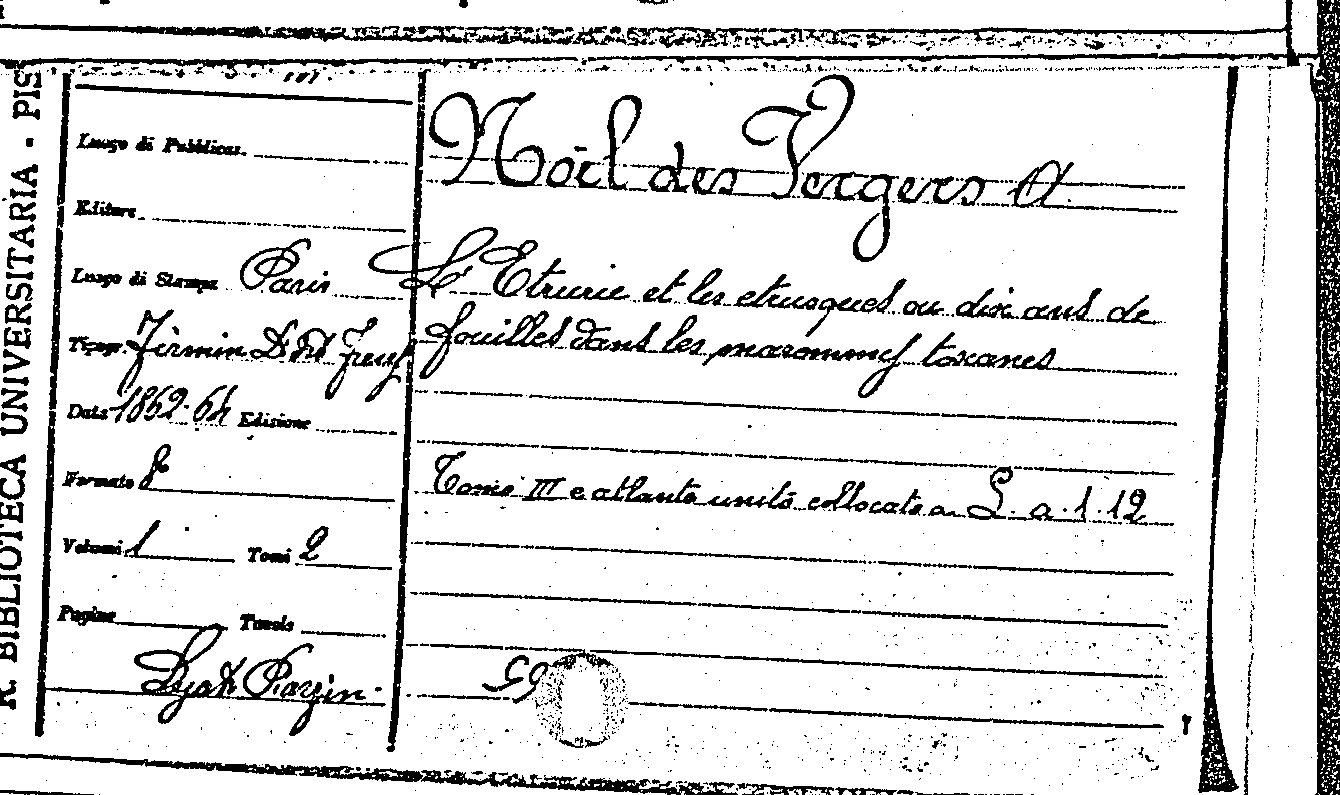 R. BIBLIOTECA UNIVERSITARIA - PIS
Noël des Vergers A.
L'Etrurie et les etrusques ou dix ans de
fouilles dans les maremmes toscanes
Tomo III e atlante uniti collocato a L. a. 1. 12
Luogo di Pubblicaz.
Editore
Luogo di Stampa Paris
Tipogr. Firmin Didot
Data 1862-64 Edizione
Formato 8°
Volumi 1 Tomi 2
Pagine Tavole